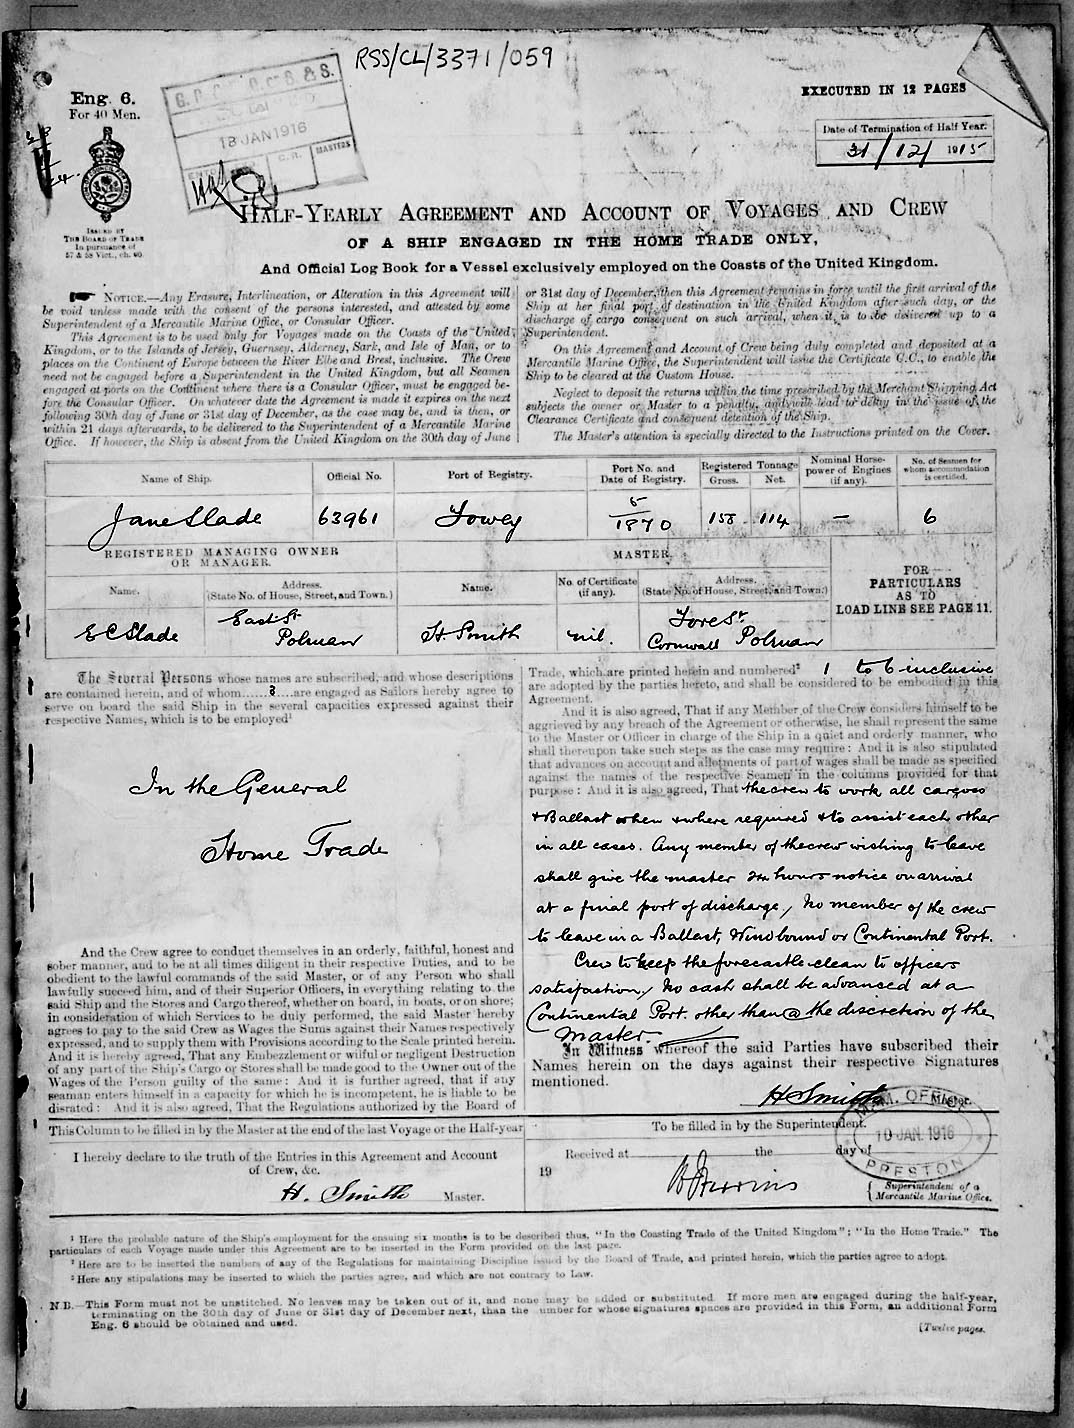 RSS/CL/3371/059
Eng. 6.
For 40 Men.
EXECUTED IN 12 PAGES
G. R. S. & S.
18 JAN 1916
C.R.
MASTERS
Date of Termination of Half Year.
31/12/1915
ISSUED BY
THE BOARD OF TRADE
In pursuance of
57 & 58 Vict., ch. 60.
HALF-YEARLY AGREEMENT AND ACCOUNT OF VOYAGES AND CREW
OF A SHIP ENGAGED IN THE HOME TRADE ONLY,
And Official Log Book for a Vessel exclusively employed on the Coasts of the United Kingdom.
NOTICE.—Any Erasure, Interlineation, or Alteration in this Agreement will
be void unless made with the consent of the persons interested, and attested by some
Superintendent of a Mercantile Marine Office, or Consular Officer.
This Agreement is to be used only for Voyages made on the Coasts of the United
Kingdom, or to the Islands of Jersey, Guernsey, Alderney, Sark, and Isle of Man, or to
places on the Continent of Europe between the River Elbe and Brest, inclusive. The Crew
need not be engaged before a Superintendent in the United Kingdom, but all Seamen
engaged at ports on the Continent where there is a Consular Officer, must be engaged be-
fore the Consular Officer. On whatever date the Agreement is made it expires on the next
following 30th day of June or 31st day of December, as the case may be, and is then, or
within 21 days afterwards, to be delivered to the Superintendent of a Mercantile Marine
Office. If however, the Ship is absent from the United Kingdom on the 30th day of June
or 31st day of December, then this Agreement remains in force until the first arrival of the
Ship at her final port of destination in the United Kingdom after such day, or the
discharge of cargo consequent on such arrival, when it is to be delivered up to a
Superintendent.
On this Agreement and Account of Crew being duly completed and deposited at a
Mercantile Marine Office, the Superintendent will issue the Certificate C.C., to enable the
Ship to be cleared at the Custom House.
Neglect to deposit the returns within the time prescribed by the Merchant Shipping Act
subjects the owner or Master to a penalty, and will lead to delay in the issue of the
Clearance Certificate and consequent detention of the Ship.
The Master's attention is specially directed to the Instructions printed on the Cover.
Name of Ship.
Official No.
Port of Registry.
Port No. and
Date of Registry.
Registered Tonnage
Gross. Net.
Nominal Horse-
power of Engines
(if any).
No. of Seamen for
whom accommodation
is certified.
Jane Slade 63961 Fowey 5/1870 158 114 — 6
REGISTERED MANAGING OWNER
OR MANAGER.
MASTER.
Name.
Address.
(State No. of House, Street, and Town.)
Name.
No. of Certificate
(if any).
Address.
(State No. of House, Street, and Town.)
FOR
PARTICULARS
AS TO
LOAD LINE SEE PAGE 11.
E C Slade
East St
Polruan
H. Smith
nil.
Fore St
Cornwall Polruan
The Several Persons whose names are subscribed, and whose descriptions
are contained herein, and of whom......3....are engaged as Sailors hereby agree to
serve on board the said Ship in the several capacities expressed against their
respective Names, which is to be employed¹
In the General
Home Trade
And the Crew agree to conduct themselves in an orderly, faithful, honest and
sober manner, and to be at all times diligent in their respective Duties, and to be
obedient to the lawful commands of the said Master, or of any Person who shall
lawfully succeed him, and of their Superior Officers, in everything relating to the
said Ship and the Stores and Cargo thereof, whether on board, in boats, or on shore;
in consideration of which Services to be duly performed, the said Master hereby
agrees to pay to the said Crew as Wages the Sums against their Names respectively
expressed, and to supply them with Provisions according to the Scale printed herein.
And it is hereby agreed, That any Embezzlement or wilful or negligent Destruction
of any part of the Ship's Cargo or Stores shall be made good to the Owner out of the
Wages of the Person guilty of the same: And it is further agreed, that if any
seaman enters himself in a capacity for which he is incompetent, he is liable to be
disrated: And it is also agreed, That the Regulations authorized by the Board of
Trade, which are printed herein and numbered² 1 to 6 inclusive
are adopted by the parties hereto, and shall be considered to be embodied in this
Agreement.
And it is also agreed, That if any Member of the Crew considers himself to be
aggrieved by any breach of the Agreement or otherwise, he shall represent the same
to the Master or Officer in charge of the Ship in a quiet and orderly manner, who
shall thereupon take such steps as the case may require: And it is also stipulated
that advances on account and allotments of part of wages shall be made as specified
against the names of the respective Seamen in the columns provided for that
purpose: And it is also agreed, That the crew to work all cargoes
& Ballast when & where required & to assist each other
in all cases. Any member of the crew wishing to leave
shall give the master 24 hours notice on arrival
at a final port of discharge, No member of the crew
to leave in a Ballast, Windbound or Continental Port.
Crew to keep the forecastle clean to officers
satisfaction, No cash shall be advanced at a
Continental Port. other than @ the discretion of the
Master.
In Witness whereof the said Parties have subscribed their
Names herein on the days against their respective Signatures
mentioned.
H Smith Master.
M.M. OFFICE
10 JAN. 1916
PRESTON
This Column to be filled in by the Master at the end of the last Voyage or the Half-year
I hereby declare to the truth of the Entries in this Agreement and Account
of Crew, &c.
H. Smith Master.
To be filled in by the Superintendent.
Received at the day of
19
Superintendent of a
Mercantile Marine Office.
¹ Here the probable nature of the Ship's employment for the ensuing six months is to be described thus, "In the Coasting Trade of the United Kingdom"; "In the Home Trade." The
particulars of each Voyage made under this Agreement are to be inserted in the Form provided on the last page.
² Here are to be inserted the numbers of any of the Regulations for maintaining Discipline issued by the Board of Trade, and printed herein, which the parties agree to adopt.
³ Here any stipulations may be inserted to which the parties agree, and which are not contrary to Law.
N.B.—This Form must not be unstitched. No leaves may be taken out of it, and none may be added or substituted. If more men are engaged during the half-year,
terminating on the 30th day of June or 31st day of December next, than the number for whose signatures spaces are provided in this Form, an additional Form
Eng. 6 should be obtained and used.
[Twelve pages.